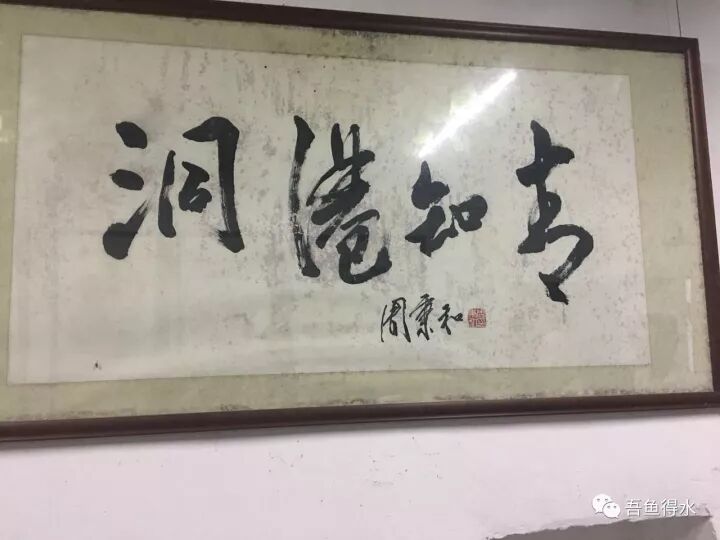 洞港知青
周秉和
吾鱼得水